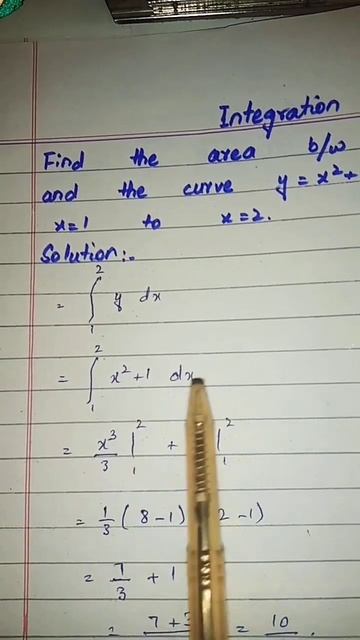 Integration
Find the area b/w
and the curve y = x² +
x=1 to x=2.
Solution:-
= ∫₁² y dx
= ∫₁² x²+1 dx
= x³/3 |₁² + |₁²
= 1/3 ( 8-1) 2 -1)
= 7/3 + 1
= 7+3 = 10